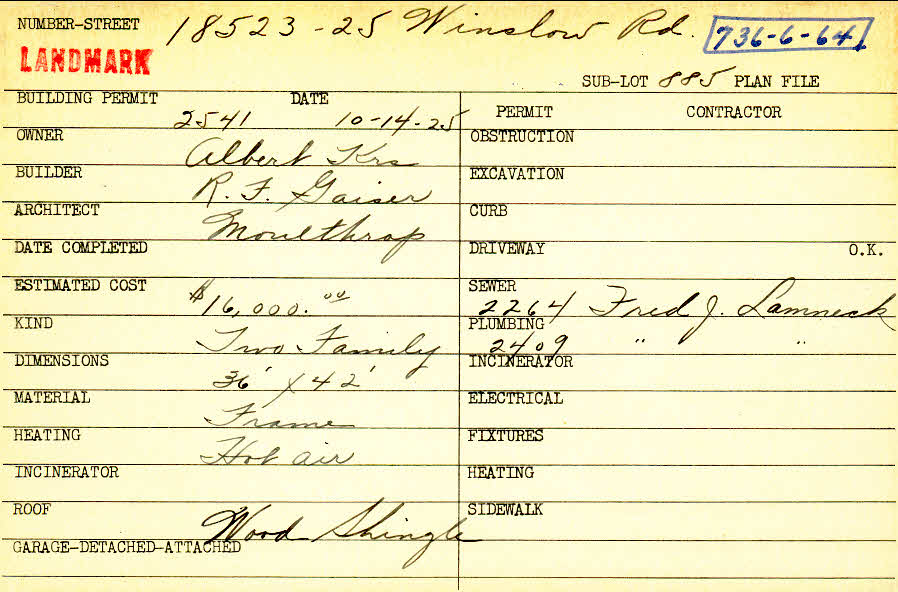 NUMBER-STREET 18523-25 Winslow Rd. 736-6-64
LANDMARK
SUB-LOT 885 PLAN FILE
BUILDING PERMIT DATE
2541 10-14-25
PERMIT CONTRACTOR
OWNER Albert Krs
OBSTRUCTION
BUILDER R. F. Gaiser
EXCAVATION
ARCHITECT Moulthrop
CURB
DATE COMPLETED
DRIVEWAY O.K.
ESTIMATED COST $16,000.00
SEWER 2264 Fred J. Lamneck
KIND Two Family
PLUMBING 2409 " "
DIMENSIONS 36' x 42'
INCINERATOR
MATERIAL Frame
ELECTRICAL
HEATING Hot air
FIXTURES
INCINERATOR
HEATING
ROOF Wood Shingle
SIDEWALK
GARAGE-DETACHED-ATTACHED